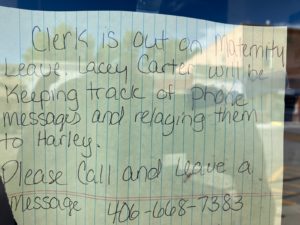 Clerk is out on Maternity
Leave. Lacey Carter will be
Keeping track of phone
messages and relaying them
to Harley.
Please Call and Leave a
Message 406-668-7383